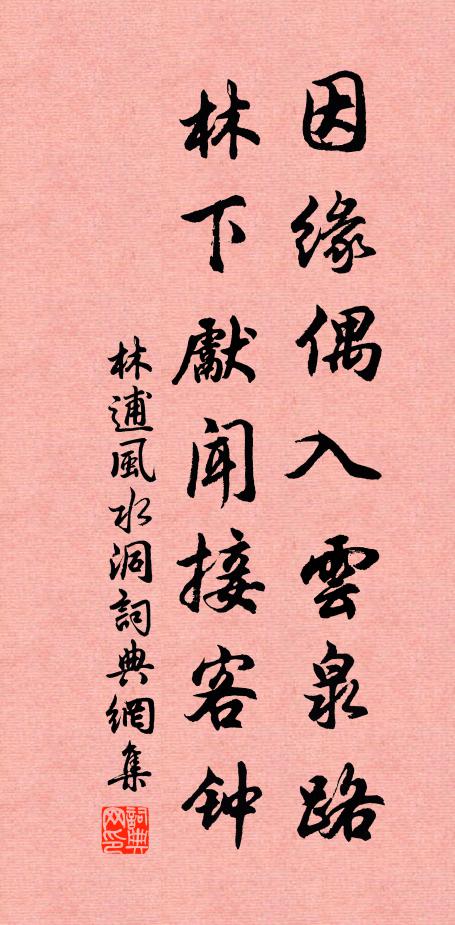 因緣偶入雲泉路
林下獻闻接客钟
林逋風水洞詞典網集
詞典网印